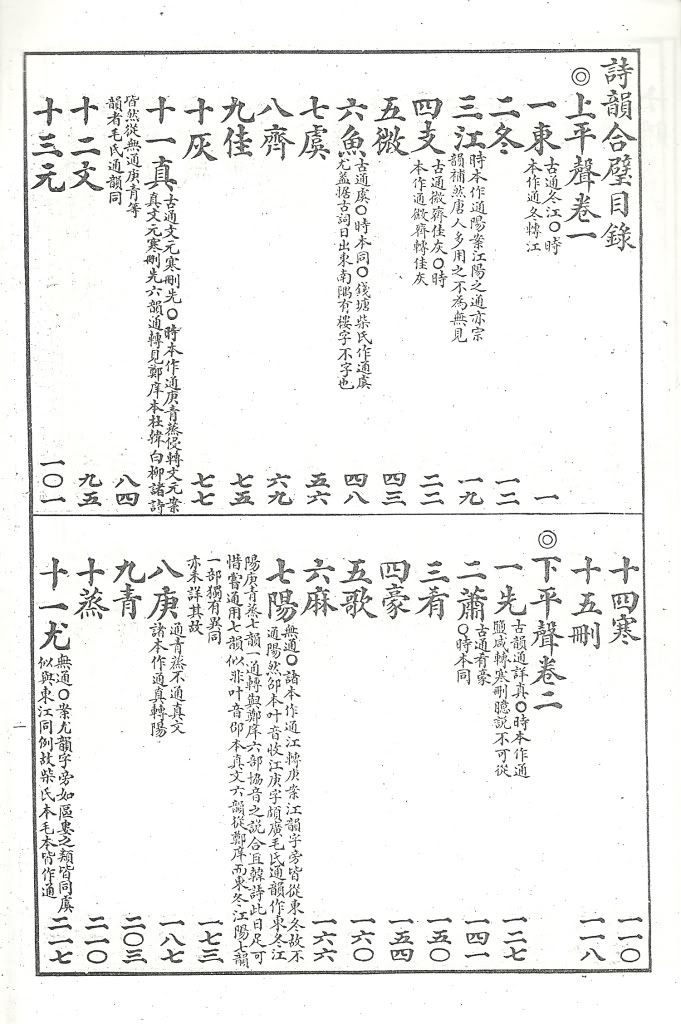 詩韻合璧目錄
◎上平聲卷一
一東 古通冬江○時本作通冬轉江 一
二冬 一二
三江 時本作通陽案江陽之通亦宗韻補然唐人多用之不為無見 一九
四支 古通微齊佳灰○時本作通微齊轉佳灰 二二
五微 四三
六魚 古通虞○時本同○錢塘柴氏作通虞尤蓋據古詞日出東南隅有樓字不字也 四八
七虞 五六
八齊 六九
九佳 七五
十灰 七七
十一真 古通文元寒刪先○時本作通庚青蒸侵轉文元案真文元寒刪先六韻通轉見鄭庠本杜韓白柳諸詩皆然從無通庚青等韻者毛氏通韻同 八四
十二文 九五
十三元 一〇一
十四寒 一一〇
十五刪 一一八
◎下平聲卷二
一先 古韻通詳真○時本作通鹽咸轉寒刪臆說不可從 一二七
二蕭 古通肴豪○時本同 一四一
三肴 一五〇
四豪 一五四
五歌 一六〇
六麻 一六六
七陽 無通○諸本作通江轉庚案江韻字旁皆從東冬故不通陽然邵本叶音收江庚字頗廣毛氏通韻作東冬江陽庚青蒸七韻一通轉與鄭庠六部協音之說合且韓詩此日足可惜嘗通用七韻似非叶音邵本真文六韻從鄭庠而東冬江陽七韻一部獨有異同亦未詳其故 一七三
八庚 通青蒸不通真文諸本作通真轉陽 一八七
九青 二〇三
十蒸 二一〇
十一尤 無通○案尤韻字旁如區婁之類皆同虞似與東江同例故柴氏本毛本皆作通 二一七